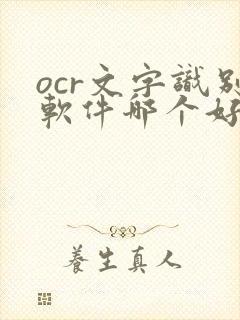 ocr文字識别
軟件哪个好
養生真人